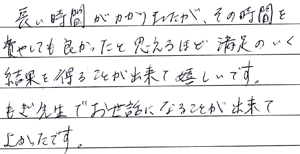 長い時間がかかりましたが、その時間を
費やしても良かったと思えるほど満足のいく
結果を得ることが出来て嬉しいです。
もぎ先生でお世話になることが出来て
よかったです。